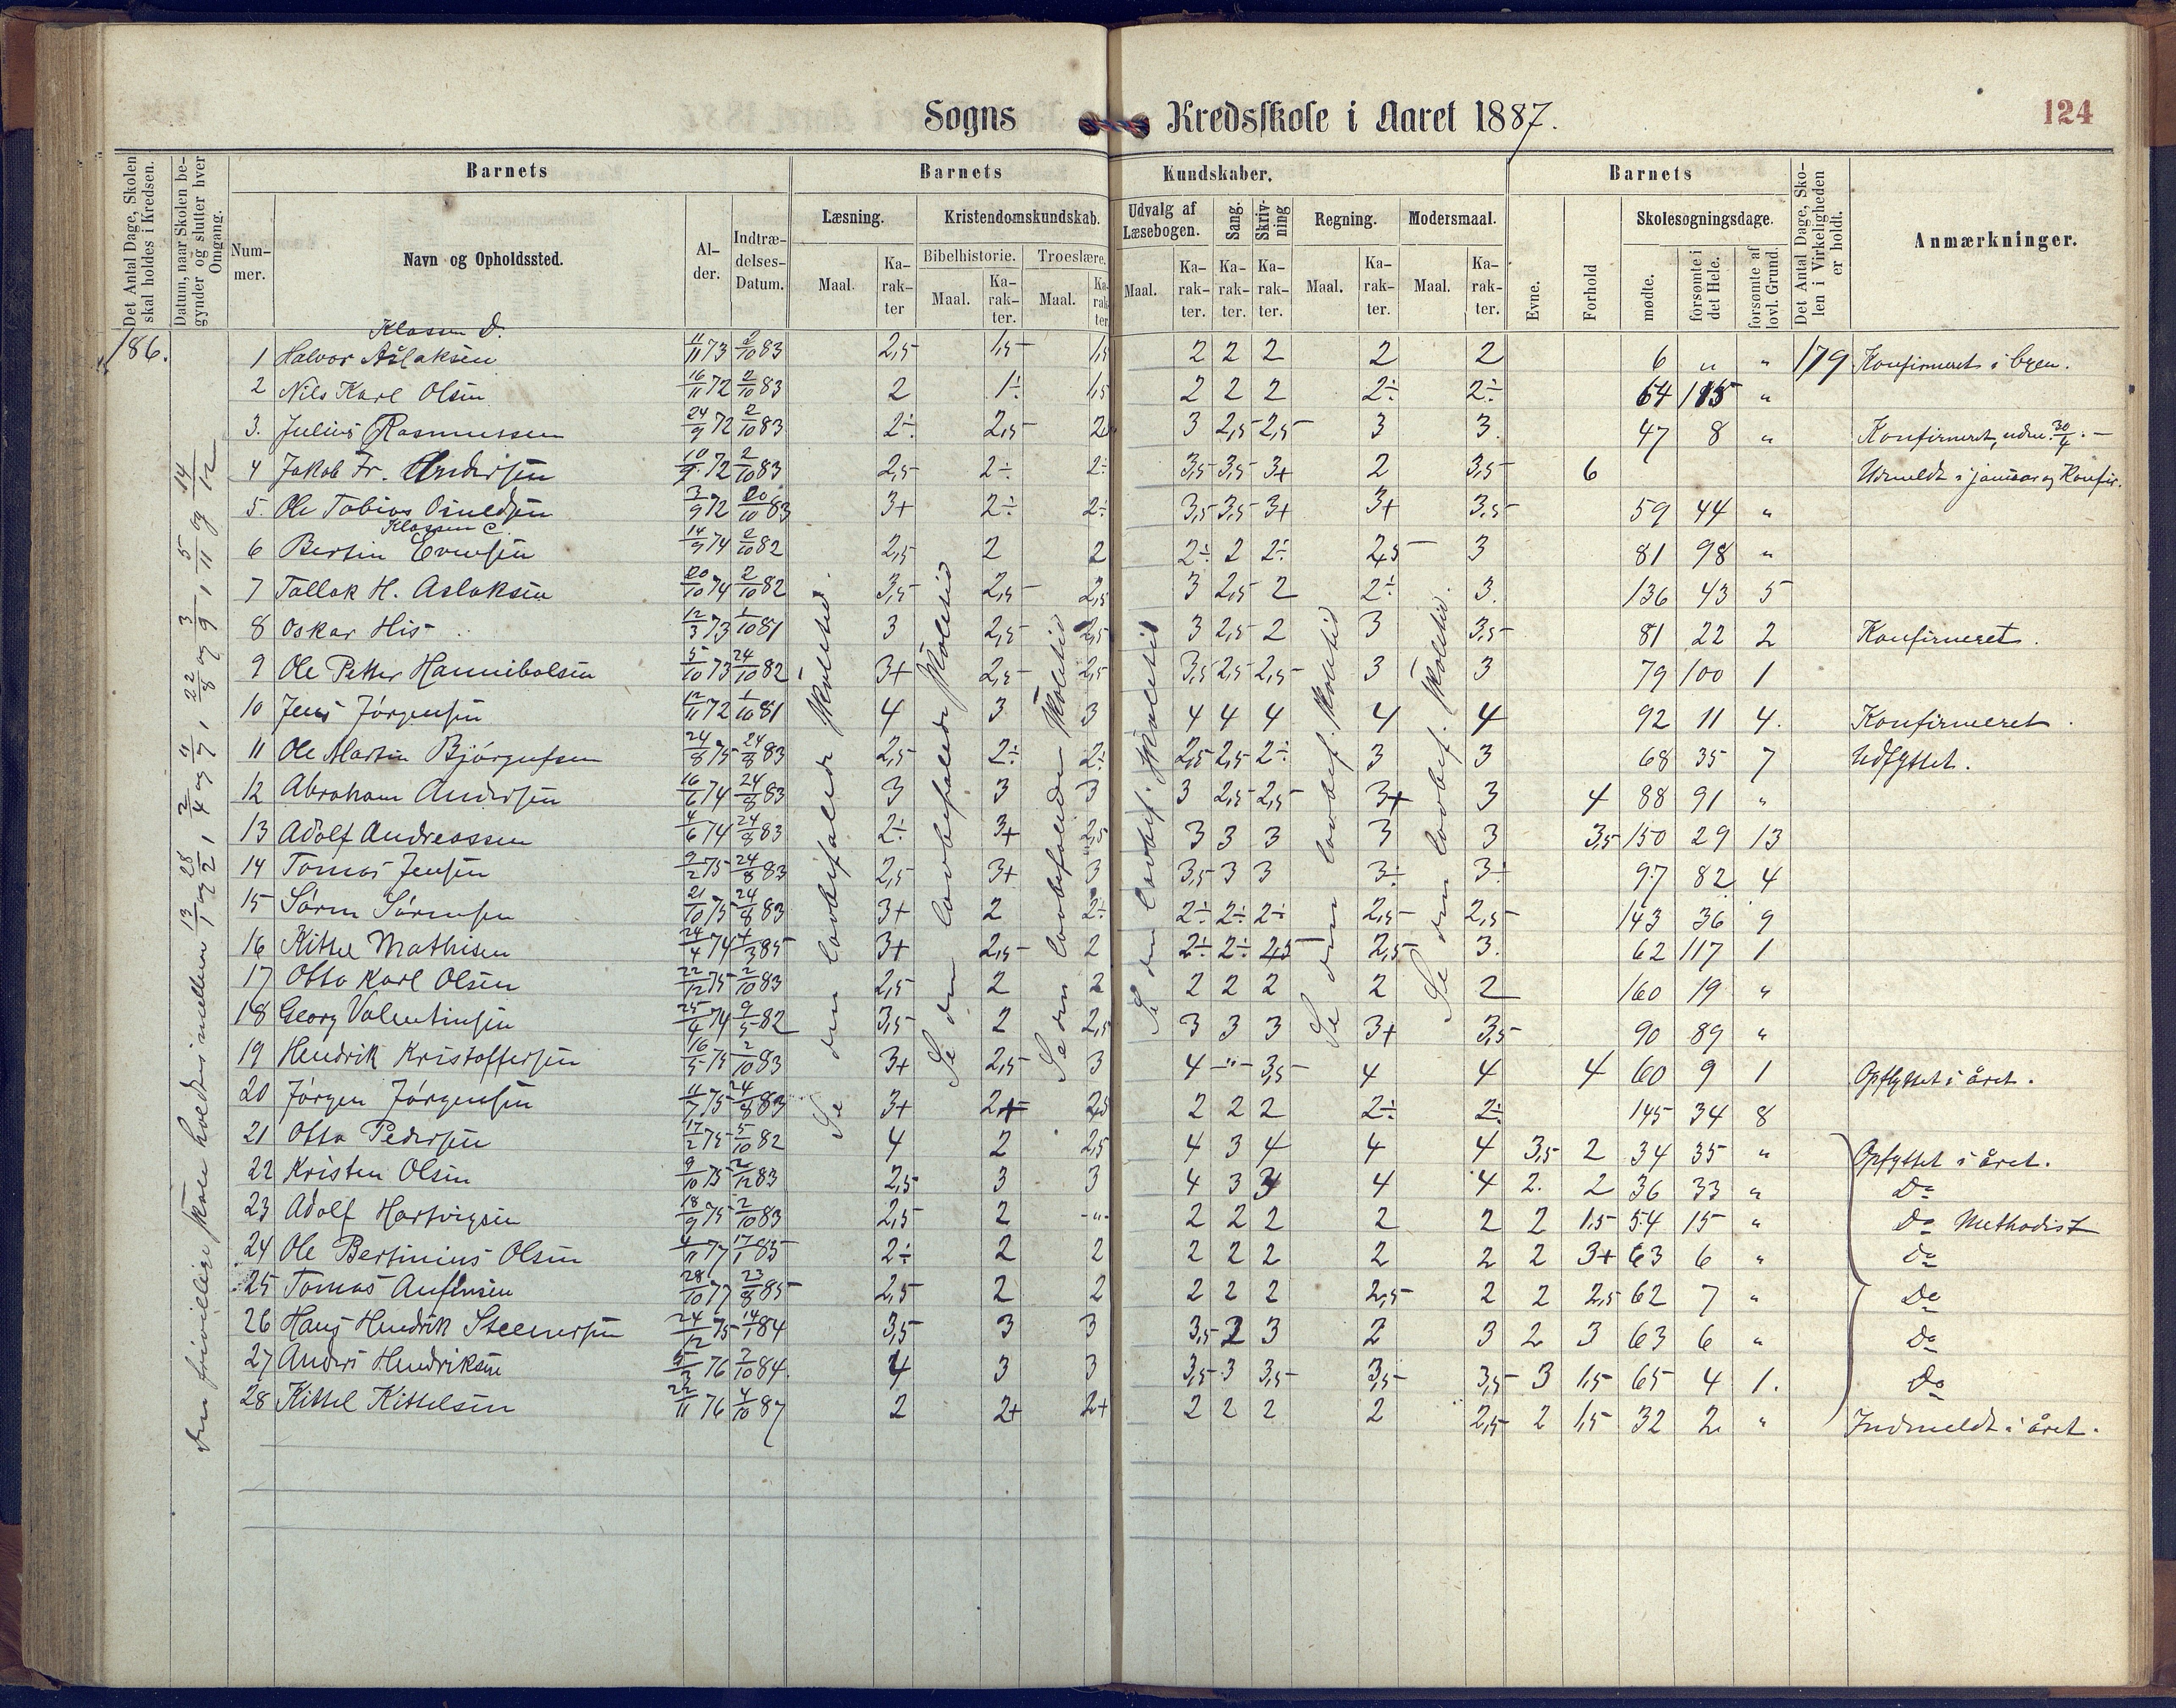 Sogns Kredsskole i Aaret 1887.
124
Det Antal Dage, Skolen skal holdes i Kredsen.
Datum, naar Skolen begynder og slutter hver Omgang.
Barnets
Nummer.
Navn og Opholdssted.
Alder.
Indtrædelses-Datum.
Barnets Kundskaber.
Læsning.
Kristendomskundskab.
Bibelhistorie.
Troeslære.
Udvalg af Læsebogen.
Sang.
Skrivning
Regning.
Modersmaal.
Maal. Karakter Maal. Karakter. Maal. Karakter. Maal. Karakter. Karakter. Karakter. Maal. Karakter. Maal. Karakter.
Barnets
Evne.
Forhold
Skolesøgningsdage.
mødte.
forsømte i det Hele.
forsømte af lovl. Grund.
Det Antal Dage, Skolen i Virkeligheden er holdt.
Anmærkninger.
186.
Klassen D.
1 Halvor Aslaksen 11/11 73 2/10 83 2,5 1,5 1,5 2 2 2 2 2 6 " " 179 Konfirmeret i byen.
2 Nils Karl Olsen 16/11 72 2/10 83 2 1÷ 1,5 2 2 2 2÷ 2÷ 64 115 "
3. Julius Rasmussen 24/9 72 2/10 83 2÷ 2,5 2 3 2,5 2,5 3 3. 47 8 " Konfirmeret, udm. 30/4. –
4 Jakob Fr. Andersen 10/9 72 2/10 83 2,5 2÷ 2÷ 3,5 3,5 3+ 2 3,5 6 Udmeldt i januar og Konfir.
5. Ole Tobias 3/9 72 20/10 83 3+ 2÷ 2÷ 3,5 3,5 3+ 3+ 3,5 59 44 "
Klassen C
6 Bertin Evensen 14/9 74 2/10 82 2,5 2 2 2÷ 2 2÷ 2,5 3 81 98 "
7 Tallak H. Aslaksen 20/10 74 2/10 82 3,5 2,5 2,5 3 2,5 2 2÷ 3. 136 43 5
8 Oskar His 12/3 73 1/10 81 3 2,5 2,5 3 2,5 2 3 3,5 81 22 2 Konfirmeret.
9 Ole Petter Hannibalsen 5/10 73 24/10 82 3+ 2,5 2,5 3,5 2,5 2,5 3 3 79 100 1
10 Jens Jörgensen 12/11 72 1/10 81 4 3 3 4 4 4 4 4 92 11 4. Konfirmeret.
11 Ole Martin Bjørgufsen 24/8 75 24/8 83 2,5 2÷ 2÷ 2,5 2,5 2÷ 3 3 68 35 7 Udflyttet.
12 Abraham Andersen 16/6 74 24/8 83 3 3 3 3 2,5 2,5 3+ 3 4 88 91 "
13 Adolf Andreassen 4/6 74 24/8 83 2÷ 3+ 2,5 3 3 3 3 3 3,5 150 29 13
14 Tomas Jensen 9/2 75 24/8 83 2,5 3+ 3 3,5 3 3 3÷ 3÷ 97 82 4
15 Sören Sörensen 21/10 75 24/8 83 3+ 2 2÷ 2÷ 2÷ 2÷ 2,5 2,5 143 36 9
16 Kittel Mathisen 24/4 74 4/3 85 3+ 2,5 2 2÷ 2÷ 2,5 2,5 3. 62 117 1
17 Otto Karl Olsen 22/12 75 2/10 83 2,5 2 2 2 2 2 2 2 160 19 "
18 Georg Valentinsen 25/4 74 9/5 82 3,5 2 2,5 3 3 3 3+ 3,5 90 89 "
19 Hendrik Kristoffersen 16/5 75 2/10 83 3+ 2,5 3 4 " 3,5 4 4 4 60 9 1 Opflyttet i året.
20 Jörgen Jörgensen 11/7 75 24/8 83 3+ 2+ 2,5 2 2 2 2÷ 2÷ 145 34 8
21 Otto Pedersen 17/2 75 5/10 82 4 2 2,5 4 3 4 4 4 3,5 2 34 35 " Opflyttet i året.
22 Kristen Olsen 9/10 75 2/12 83 2,5 3 3 4 3 3 4 4 2. 2 36 33 " Do
23 Adolf Hartvigsen 18/9 75 2/10 83 2,5 2 -"- 2 2 2 2 2 2 1,5 54 15 " Do Methodist
24 Ole Bertinius Olsen 4/11 77 17/1 85 2÷ 2 2 2 2 2 2 2 2 3+ 63 6 " Do
25 Tomas Aufensen 28/10 77 23/8 85 2,5 2 2 2 2 2 2,5 2 2 2,5 62 7 " Do
26 Hans Hendrik Steenersen 24/12 75 14/1 84 3,5 3 3 3,5 2 3 2 3 2 3 63 6 " Do
27 Anders Hendriksen 5/3 76 2/10 84. 4 3 3 3,5 3 3,5 3,5 3,5 3 1,5 65 4 1. Do
28 Kittel Kittelsen 22/11 76 4/10 87 2 2+ 2+ 2 2 2 2 2,5 2 1,5 32 2 " Indmeldt i året.
Den frivillige skole holdtes imellem 13/1 og 28/2, 2/4 og 11/7, 22/8 og 3/9, 5/11 og 14/12
Se den lovbefalede skoletid.
Se den lovbefalede skoletid
Se den lovbefalede skoletid
Se den lovbef. skoletid
Se den lovbef. skoletid
Se den lovbef. skoletid.